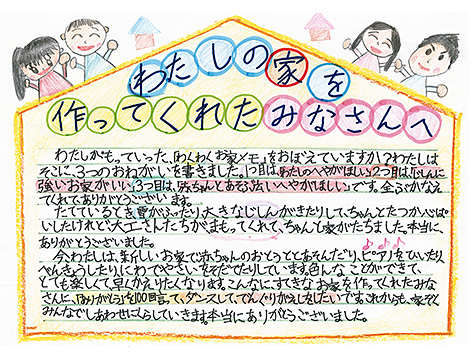 わたしの家を
作ってくれたみなさんへ
わたしがもっていった、「わくわくお家メモ」をおぼえていますか?わたしは
そこに、3つのおねがいを書きました。1つ目は、「わたしのへやがほしい」2つ目は、「じしんに
強いお家がいい」3つ目は、「赤ちゃんとあそぶ広いへやがほしい」です。全ぶかなえ
てくれて、ありがとうございます。
たてているとき、雪がふったり、大きなじしんがきたりして、ちゃんとたつか心ぱ
いしたけれど、大工さんたちがまもってくれて、ちゃんと家がたちました。本当に、
ありがとうございました。
今わたしは、新しいお家で赤ちゃんのおとうととあそんだり、ピアノをひいたり、
べんきょうしたり、にわでやさいをそだてたりしています。色んなことができて、
とても楽しくて早くかえりたくなります。こんなにすてきなお家を作ってくれたみな
さんに、「ありがとう」を100回言って、ダンスして、でんぐりがえしをしたいです。これからも、家ぞく
みんなでしあわせにくらしていきます。本当にありがとうございました。